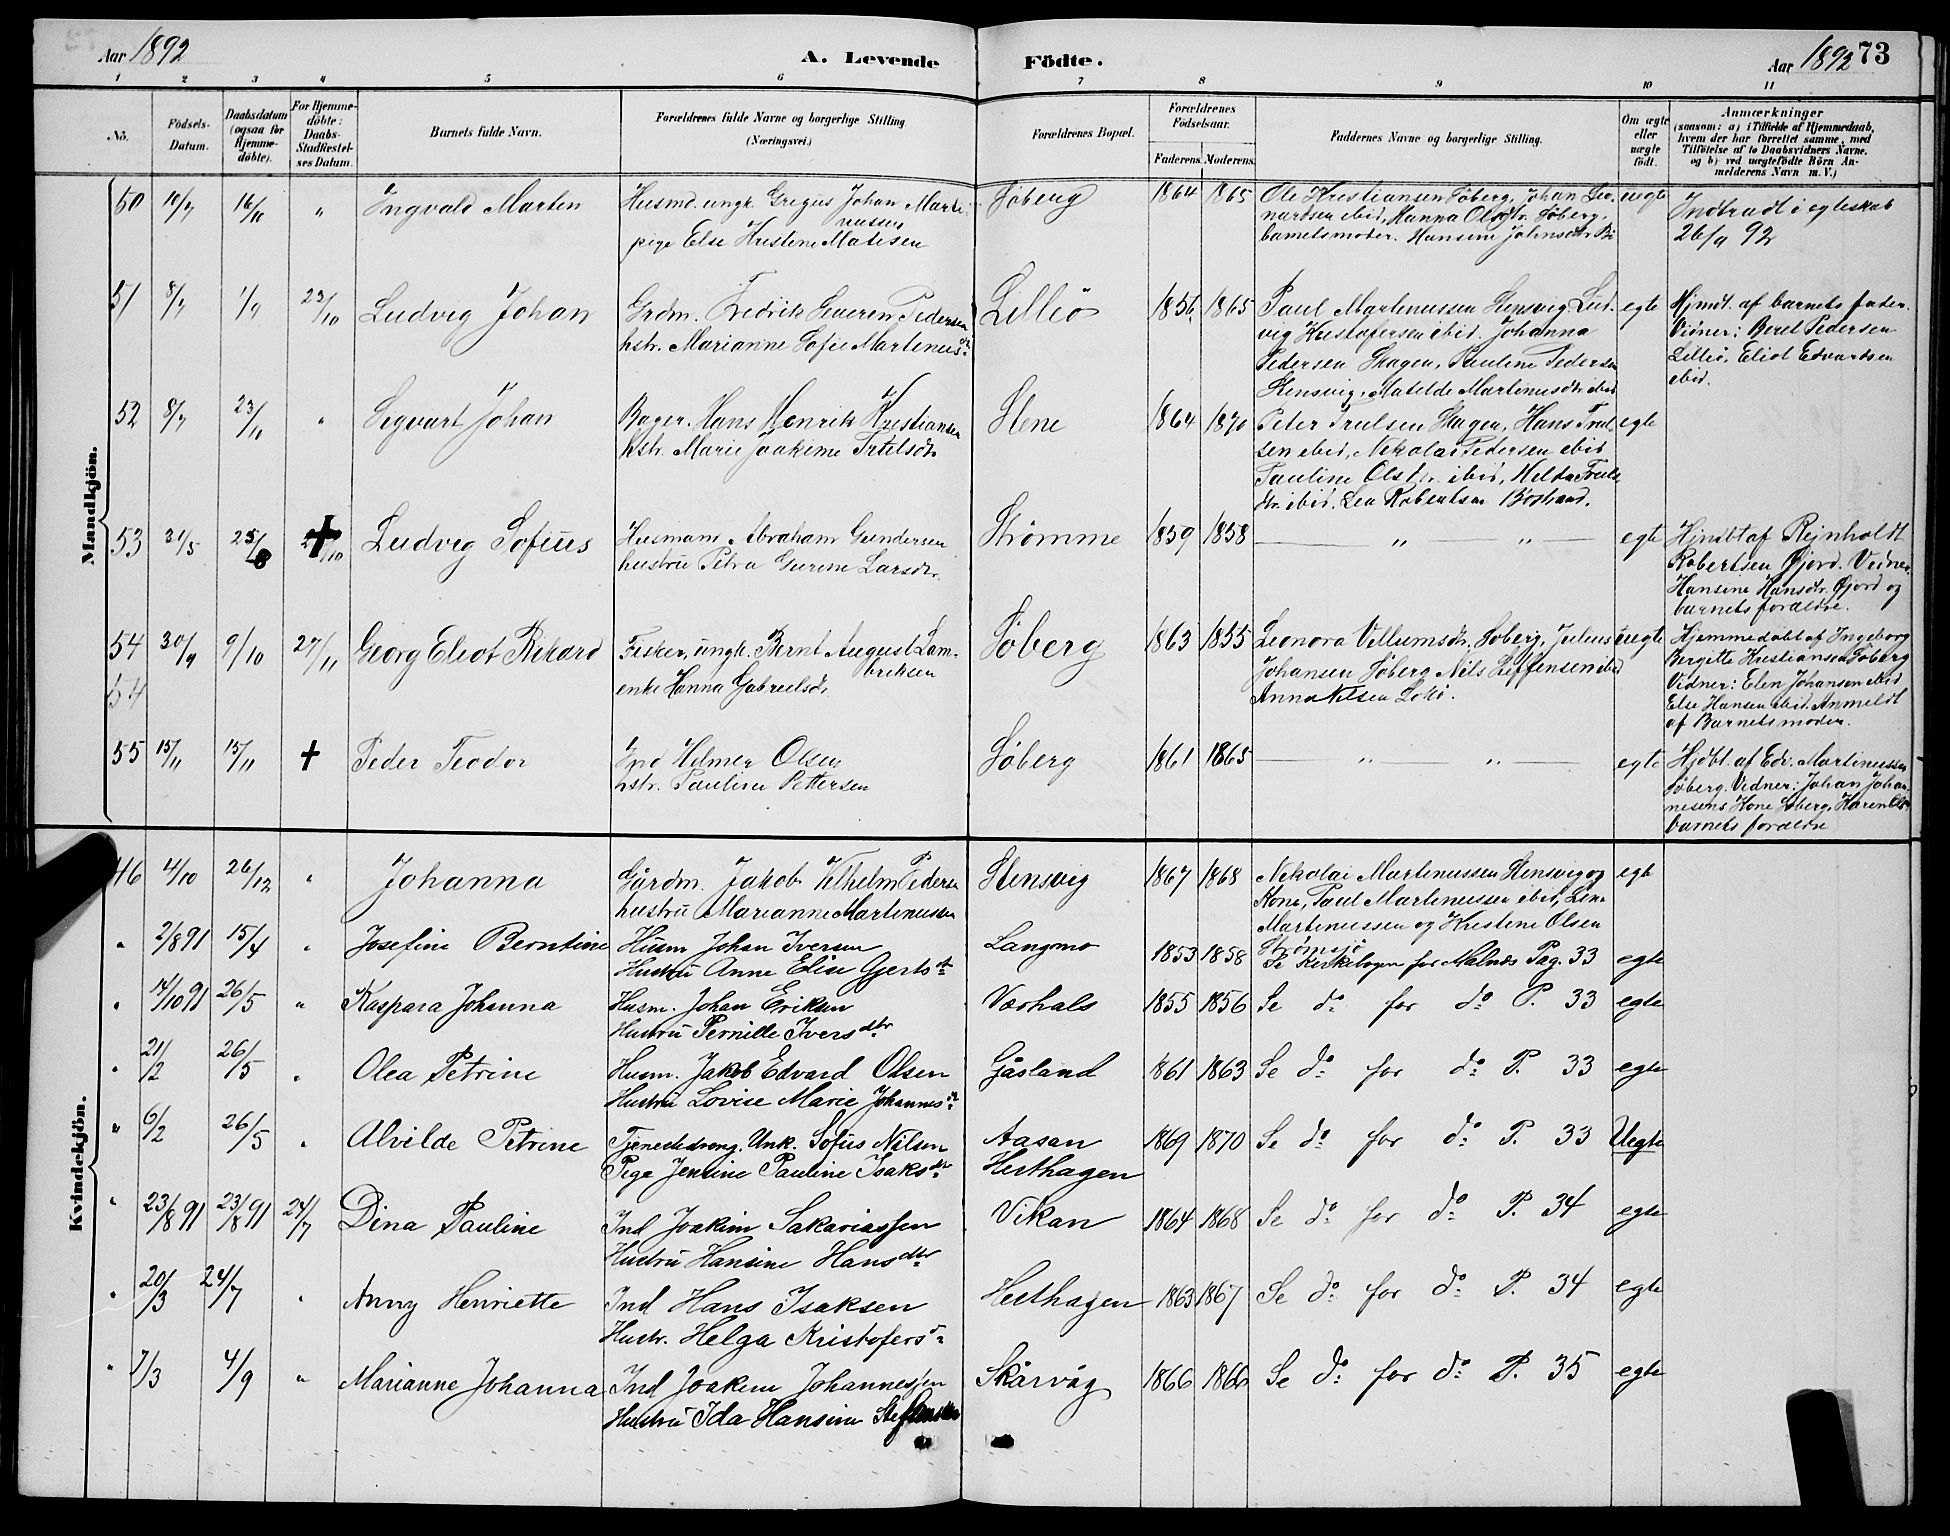 Aar 1892
A. Levende Födte.
Aar 1892 73
1 2 3 4 5 6 7 8 9 10 11
No.
Födsels-Datum.
Daabsdatum (ogsaa for Hjemme-döbte).
For Hjemme-döbte: Daabs-Stadfæstel-ses Datum.
Barnets fulde Navn.
Forældrenes fulde Navne og borgerlige Stilling (Næringsvei.)
Forældrenes Bopæl.
Forældrenes Födselsaar.
Faderens. Moderens.
Faddernes Navne og borgerlige Stilling.
Om ægte eller uægte födt.
Anmærkninger
(saasom: a) i Tilfælde af Hjemmedaab, hvem der har forrettet samme, med Tilföielse af to Daabsvidners Navne. og b) ved uægtefödte Börn An-melderens Navn m. V.)
Mandkjön.
50 10/7 16/11 " Ingvald Martin
Husmd. ungk. Gregus Johan Marti-nussen
pige Else Kristine Matisen
Søberg 1864 1865
Ole Kristiansen Søberg, Johan Leo-
nardsen ibid, Hanna Olsdtr. Søberg,
barnetsmoder. Hansine Johnsdtr. Bø
uegte
Indtradt i egteskab
26/9 92
51 8/7 1/9 23/10 Ludvig Johan
Grdm. Fredrik Severin Pedersen
hstr. Marianne Sofie Martinusdr.
Lilleö 1856 1865
Paul Martinussen Stensvig, Lud-
vig Kristofersen ibid. Johanna
Pedersen Skagen, Pauline Pedersen
Stensvig, Matilde Martinusdtr. ibid
egte
Hjmdt. af barnets fader.
Vidner: Beret Pedersen
Lilleö, Eliot Edvardsen
ibid.
52 8/7 23/11 " Segvart Johan
Bager. Hans Henrik Kristiansen
hstr. Marie Joakime Trulsdtr.
Stene 1864 1870
Peter Trulsen Skagen, Hans Trul-
sen ibid, Nikolai Pedersen ibid
Pauline Olsdtr. ibid, Hilda Truls-
dtr. ibid, Lea Robertsen Børhand.
egte
53 31/5 25/8 Ludvig Sofius
Husmann Abraham Gundersen
hustru Petra Gurine Larsdtr.
Strømme 1859 1858
" "
egte
Hjmdbt af Rejnholdt
Robertsen Gjord. Vidner
Hansine Hansdtr. Gjord og
barnets forældre.
54 30/9 9/10 27/11 Georg Eliot Rikard
54
Fisker, ungk. Bernt August Lam-briksen
enke Hanna Gabrielsdr.
Søberg 1863 1855
Leonora Villumsdr. Søberg, Julius
Johansen Søberg Nils Steffensen ibid
Anna Nilsen Lokö.
uegte
Hjemmedøbt af Ingeborg
Bergitte Kristiansen Søberg
Vidner: Elen Johansen ibid
Else Hansen ibid. Anmeldt
af Barnets moder.
55 15/11 15/11 + Peder Teodor
Ind Hilmer Olsen
hstr. Pauline Pettersen
Søberg 1861 1865
" "
egte
Hjdbt. af Edv. Martinussen
Søberg. Vidner: Johan Johan-
nesens Kone Søberg, Karen Ols
barnets forældre
Kvindekjön.
46 4/10 26/12 " Johanna
Gårdm. Jakob Vilhelm Pedersen
hustru Marianne Martinussen
Stensvig 1867 1868
Nikolai Martinussen Stensvig og
Kone, Paul Martinussen ibid, Lina
Martinussen og Kristine Olsen
Strømsjø
egte
" 2/8 91 15/4 " Josefine Berntine
Husm Johan Iversen
Hustru Anne Elise Gjertsdtr
Langmo 1853 1858
Se Kirkebogen for Malnæs Pag. 33 egte
" 14/10 91 26/5 " Kaspara Johanna
Husm. Johan Eriksen
Hustru Pernille Iversdtr
Vorhals 1855 1856 Se do for do P. 33 egte
" 21/2 26/5 " Olea Petrine
Husm. Jakob Edvard Olsen
Hustru Lovise Marie Johannesdr
Gåsland 1861 1863 Se do for do P. 33 egte
" 6/2 26/5 " Alvilde Petrine
Tjenestedreng. Unk. Sofus Nilsen
Pige Jensine Pauline Isaksdtr
Aasan
Hesthagen
1869 1870 Se do for do P. 33 Uegte
" 23/8 91 23/8 91 24/7 Dina Pauline
Ind Joakim Sakariassen
Hustru Hansine Hansdtr
Vikan 1864 1868 Se do for do P. 34 egte
" 20/3 24/7 " Anny Henriette
Ind Hans Isaksen
Hustr. Helga Kristofersd
Hesthagen 1863 1867 Se do for do P. 34 egte
" 7/3 4/9 " Marianne Johanna
Ind Joakim Johannessen
Hustru Ida Hansine Steffensen
Skårvåg 1866 1866 Se do for do P. 35 egte